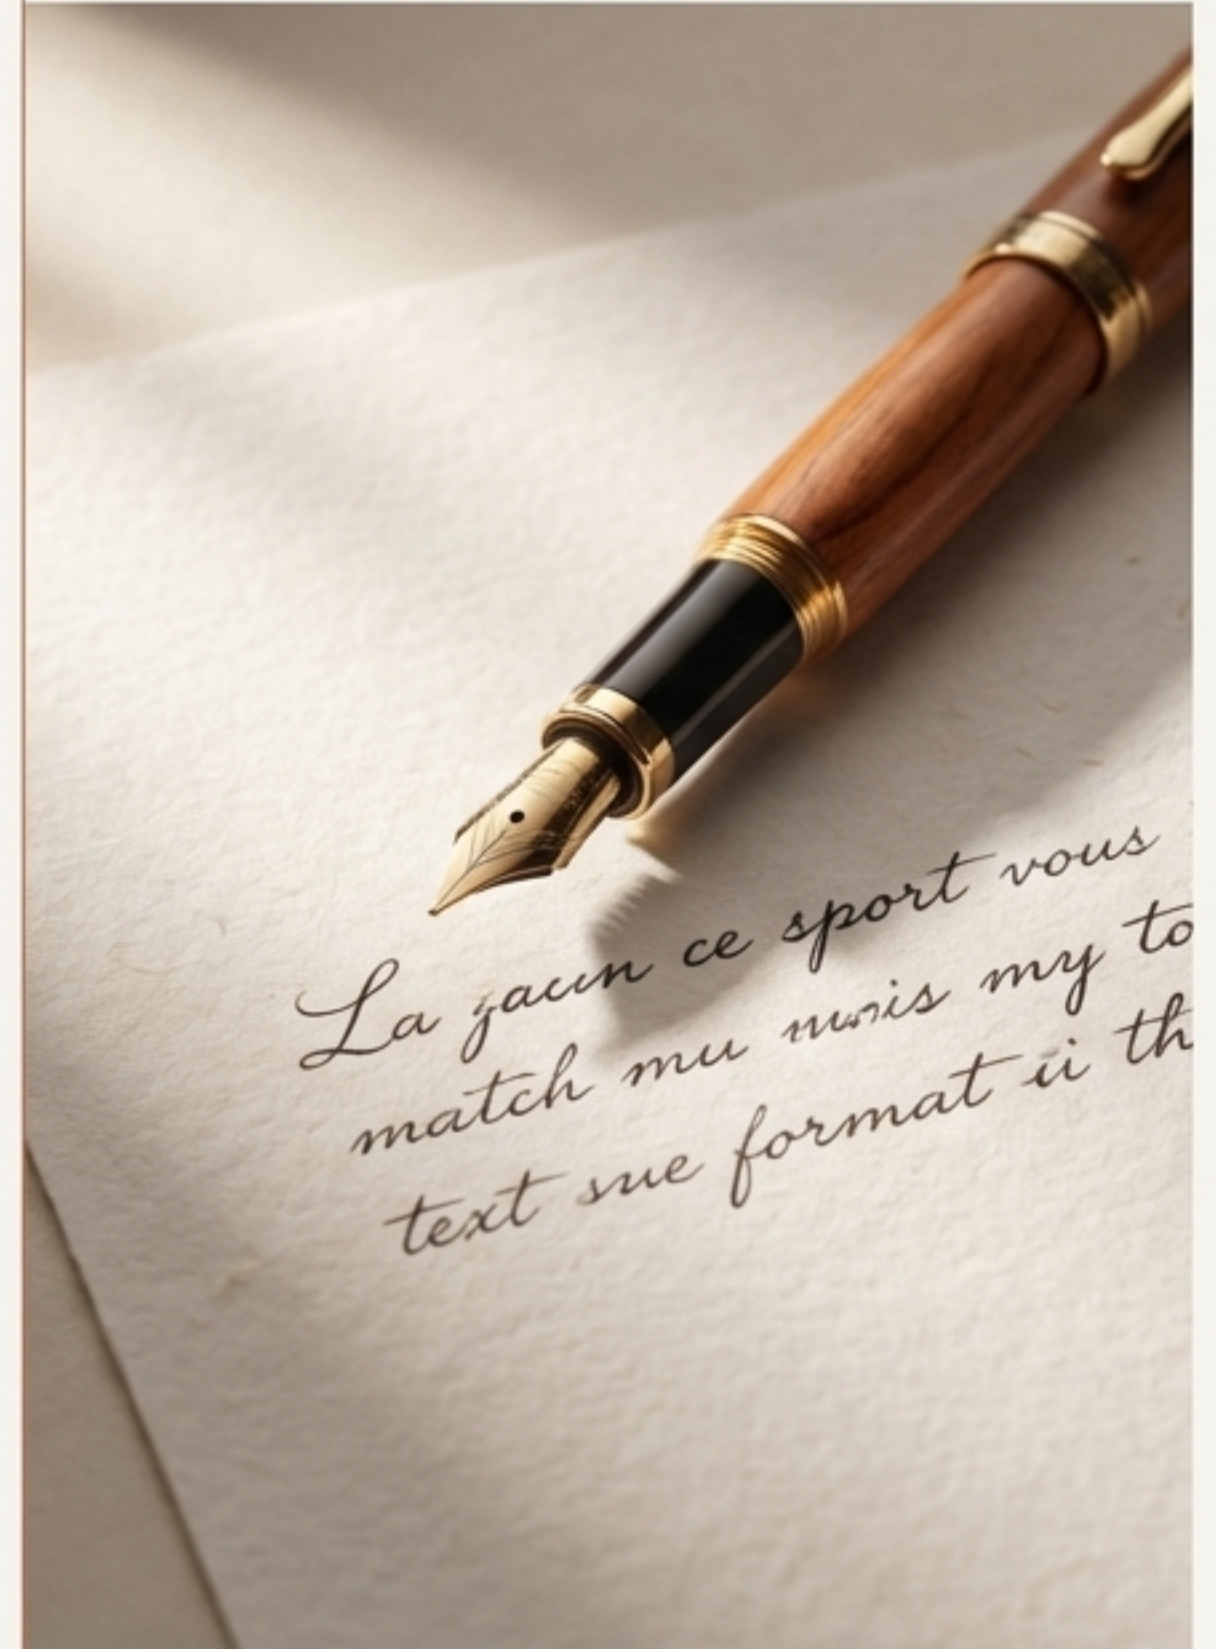 La zaun ce sport vous
match mu my to
text sue format ii th